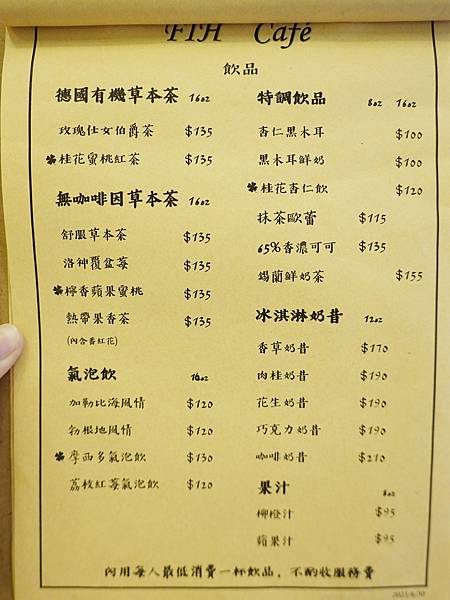 FIH Café
飲品
德國有機草本茶 16oz
玫瑰仕女伯爵茶 $135
✽桂花蜜桃紅茶 $135
無咖啡因草本茶 16oz
舒服草本茶 $135
洛神覆盆莓 $135
✽檸香蘋果蜜桃 $135
熱帶果香茶 $135
(內含番紅花)
氣泡飲 16oz
加勒比海風情 $120
勃根地風情 $120
✽摩西多氣泡飲 $130
荔枝紅莓氣泡飲 $120
特調飲品 8oz 16oz
杏仁黑木耳 $100
黑木耳鮮奶 $100
✽桂花杏仁飲 $120
抹茶歐蕾 $115
65%香濃可可 $135
錫蘭鮮奶茶 $155
冰淇淋奶昔 12oz
香草奶昔 $170
肉桂奶昔 $190
花生奶昔 $190
巧克力奶昔 $190
咖啡奶昔 $210
果汁 8oz
柳橙汁 $95
蘋果汁 $95
內用每人最低消費一杯飲品，不酌收服務費
2023/6/30